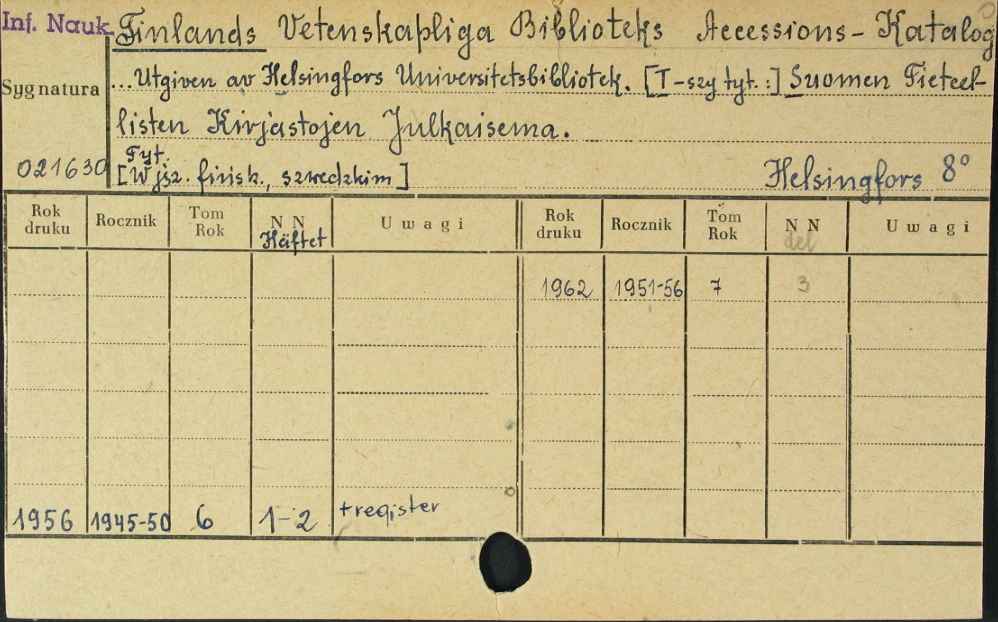 Inf. Nauk. Finlands Vetenskapliga Biblioteks Accessions-Katalog
Sygnatura ...Utgiven av Helsingfors Universitetsbibliotek. [T-szy tyt.:] Suomen Tieteel-
listen Kirjastojen Julkaisema.
021630 Tyt.
[W jęz. fińsk., szwedzkim] Helsingfors 8°
Rok druku Rocznik Tom Rok NN Häftet Uwagi Rok druku Rocznik Tom Rok NN del Uwagi
1962 1951-56 7 3
1956 1945-50 6 1-2 +register